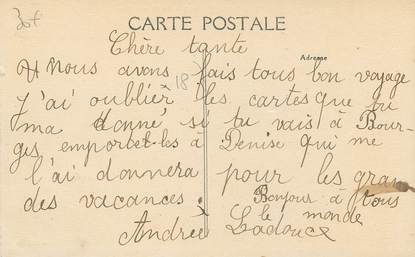 30f
CARTE POSTALE
Chère tante
Adresse
Nous avons fais tous bon voyage
18
j'ai oublier les cartes que tu
ma donné si tu vais à Bour-
ges emportet-les à Denise qui me
l'ai donnera pour les gran
des vacances. Bonjour à tous
le monde
Andrée Ladouce